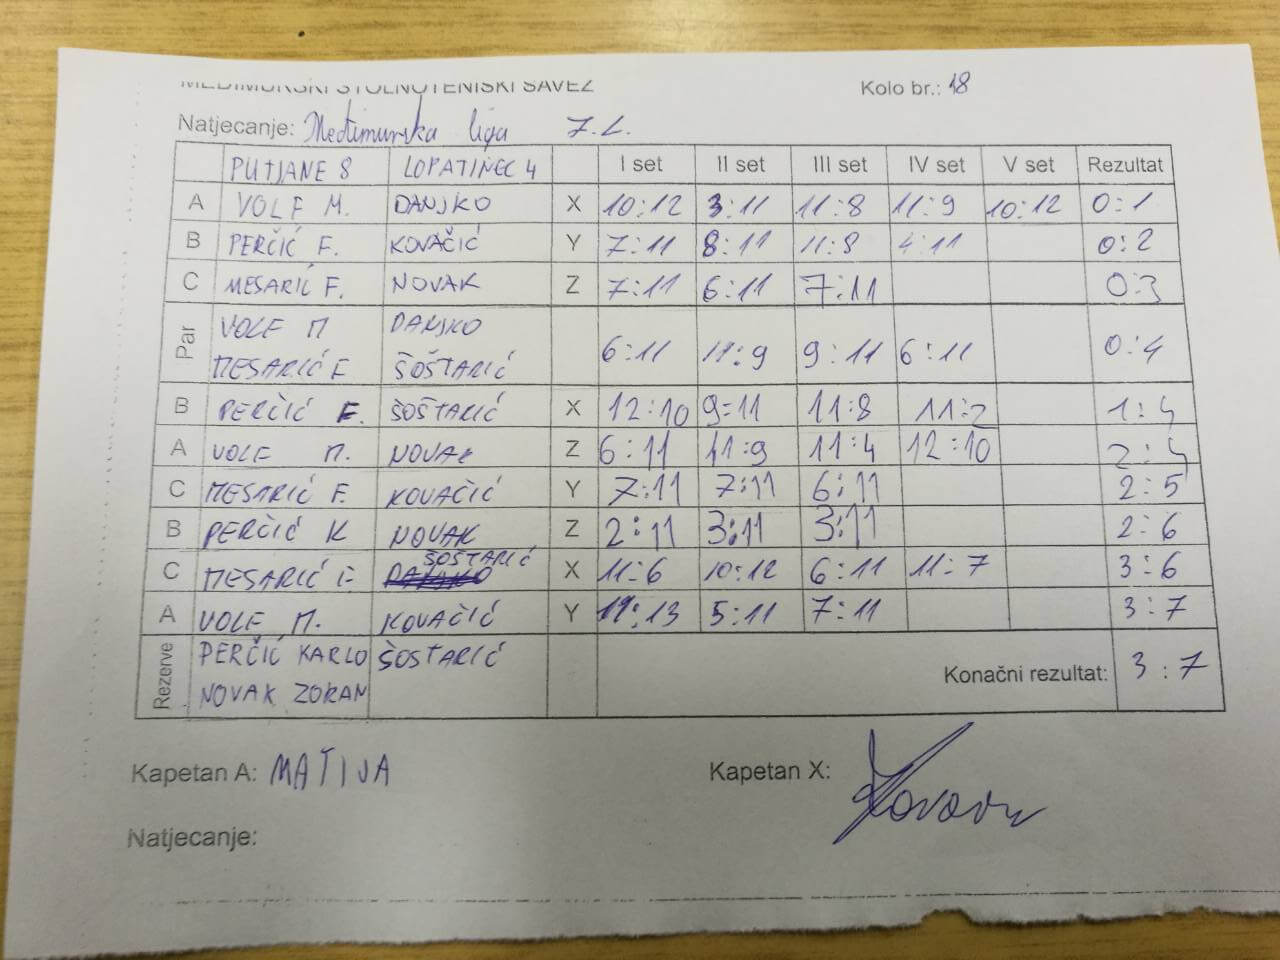 MEĐIMURSKI STOLNOTENISKI SAVEZ Kolo br.: 18
Natjecanje: Međimurska liga 7.L.
PUTJANE 8 LOPATINEC 4 I set II set III set IV set V set Rezultat
A VOLF M. DANJKO X 10:12 3:11 11:8 11:9 10:12 0:1
B PERČIĆ F. KOVAČIĆ Y 7:11 8:11 11:8 4:11 0:2
C MESARIĆ F. NOVAK Z 7:11 6:11 7:11 0:3
Par VOLF M DANJKO
MESARIĆ F. ŠOŠTARIĆ 6:11 11:9 9:11 6:11 0:4
B PERČIĆ F. ŠOŠTARIĆ X 12:10 9:11 11:8 11:2 1:4
A VOLF M. NOVAK Z 6:11 11:9 11:4 12:10 2:4
C MESARIĆ F. KOVAČIĆ Y 7:11 7:11 6:11 2:5
B PERČIĆ K NOVAK Z 2:11 3:11 3:11 2:6
C MESARIĆ F. ŠOŠTARIĆ X 11:6 10:12 6:11 11:7 3:6
A VOLF M. KOVAČIĆ Y 11:13 5:11 7:11 3:7
Rezerve PERČIĆ KARLO ŠOSTARIĆ
NOVAK ZORAN Konačni rezultat: 3:7
Kapetan A: MATIJA Kapetan X:
Natjecanje: